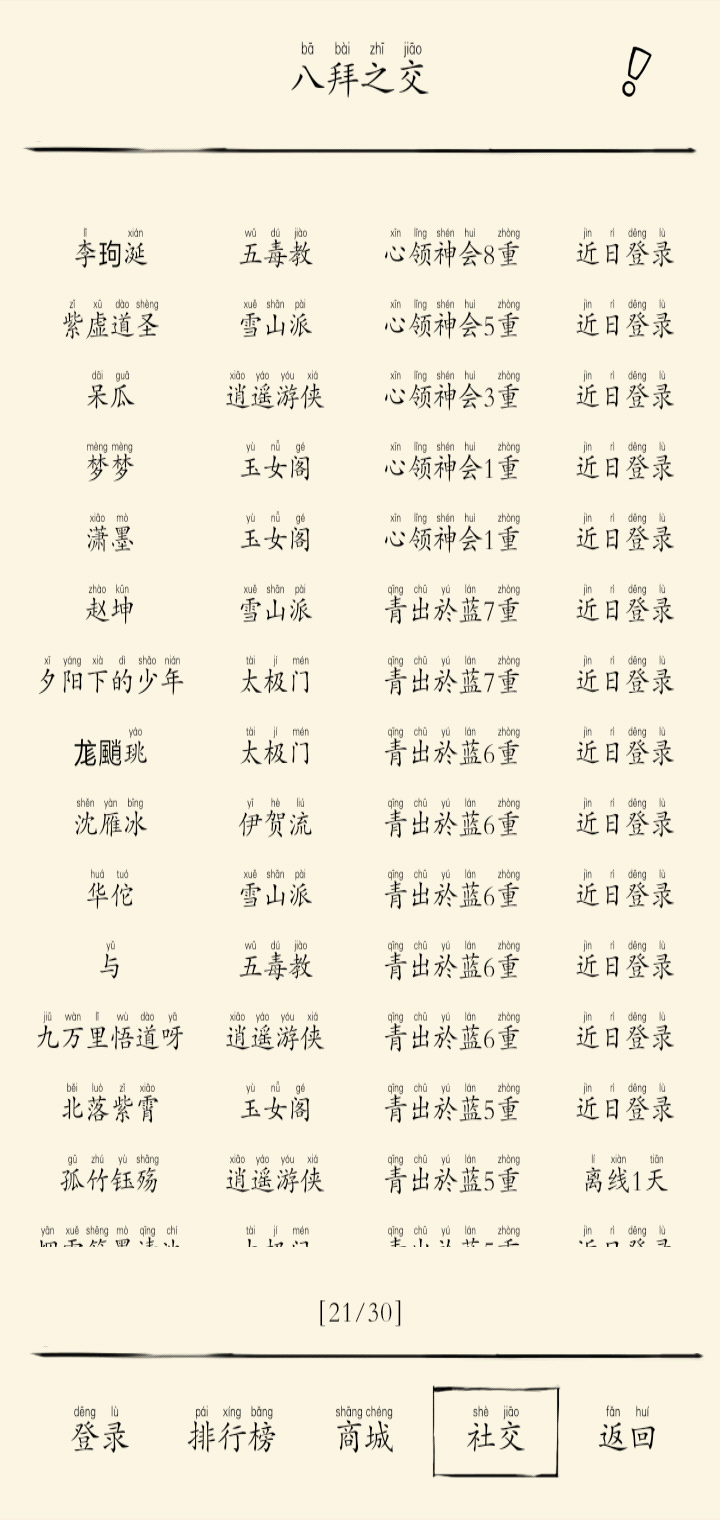 bā bài zhī jiāo
八拜之交
lǐ xián wǔ dú jiào xīn lǐng shén huì zhòng jìn rì dēng lù
李玽涎 五毒教 心领神会8重 近日登录
zǐ xū dào shèng xuě shān pài xīn lǐng shén huì zhòng jìn rì dēng lù
紫虚道圣 雪山派 心领神会5重 近日登录
dāi guā xiāo yáo yóu xiá xīn lǐng shén huì zhòng jìn rì dēng lù
呆瓜 逍遥游侠 心领神会3重 近日登录
mèng mèng yù nǚ gé xīn lǐng shén huì zhòng jìn rì dēng lù
梦梦 玉女阁 心领神会1重 近日登录
xiāo mò yù nǚ gé xīn lǐng shén huì zhòng jìn rì dēng lù
潇墨 玉女阁 心领神会1重 近日登录
zhào kūn xuě shān pài qīng chū yú lán zhòng jìn rì dēng lù
赵坤 雪山派 青出於蓝7重 近日登录
xī yáng xià dì shǎo nián tài jí mén qīng chū yú lán zhòng jìn rì dēng lù
夕阳下的少年 太极门 青出於蓝7重 近日登录
yáo tài jí mén qīng chū yú lán zhòng jìn rì dēng lù
珧 太极门 青出於蓝6重 近日登录
shěn yàn bīng yī hè liú qīng chū yú lán zhòng jìn rì dēng lù
沈雁冰 伊贺流 青出於蓝6重 近日登录
huá tuó xuě shān pài qīng chū yú lán zhòng jìn rì dēng lù
华佗 雪山派 青出於蓝6重 近日登录
yǔ wǔ dú jiào qīng chū yú lán zhòng jìn rì dēng lù
与 五毒教 青出於蓝6重 近日登录
jiǔ wàn lǐ wù dào yā xiāo yáo yóu xiá qīng chū yú lán zhòng jìn rì dēng lù
九万里悟道呀 逍遥游侠 青出於蓝6重 近日登录
běi luò zǐ xiāo yù nǚ gé qīng chū yú lán zhòng jìn rì dēng lù
北落紫霄 玉女阁 青出於蓝5重 近日登录
gū zhú yù shāng xiāo yáo yóu xiá qīng chū yú lán zhòng lí xiàn tiān
孤竹钰殇 逍遥游侠 青出於蓝5重 离线1天
yān xuě shēng mò qīng chí tài jí mén qīng chū yú lán zhòng jìn rì dēng lù
[21/30]
dēng lù pái xíng bǎng shāng chéng shè jiāo fǎn huí
登录 排行榜 商城 社交 返回